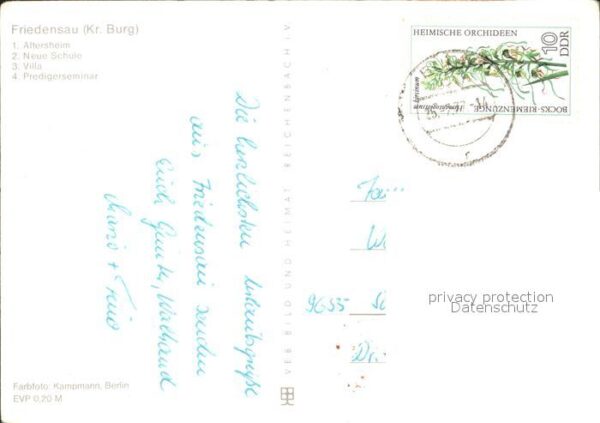 Friedensau (Kr. Burg)
1. Altersheim
2. Neue Schule
3. Villa
4. Predigerseminar
Die herzlichsten Urlaubsgrüße
aus Friedensau senden
Euch Günter, Waltraud
Mario +
VEB BILD UND HEIMAT REICHENBACH I.V
HEIMISCHE ORCHIDEEN
10
DDR
BOCKS-RIEMENZUNGE
Himantoglossum
hircinum
9655
privacy protection
Datenschutz
Farbfoto: Kampmann, Berlin
EVP 0,20 M